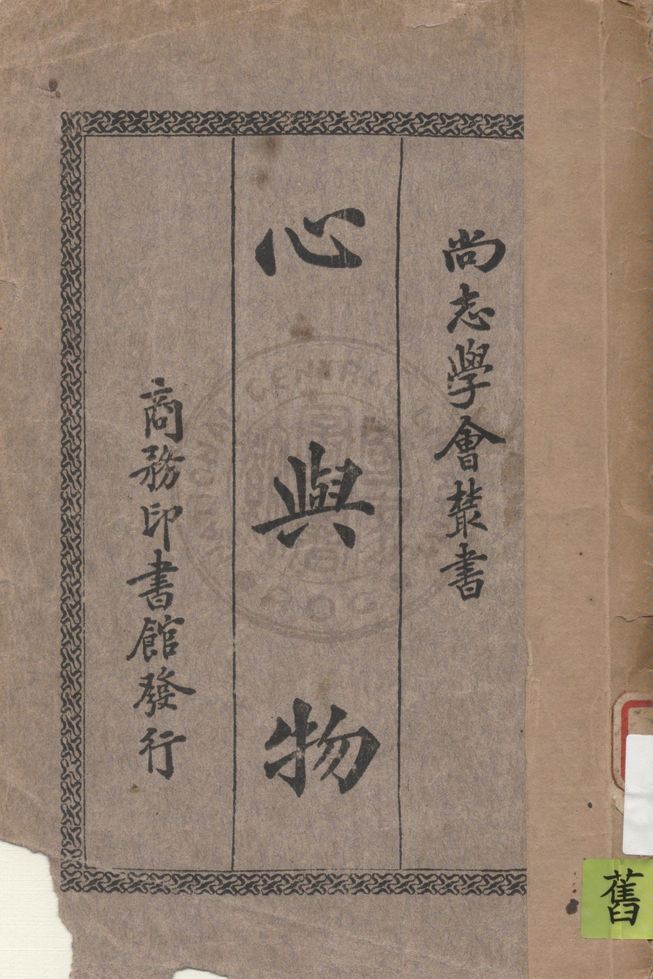 尚志學會叢書
心與物
商務印書館發行
舊